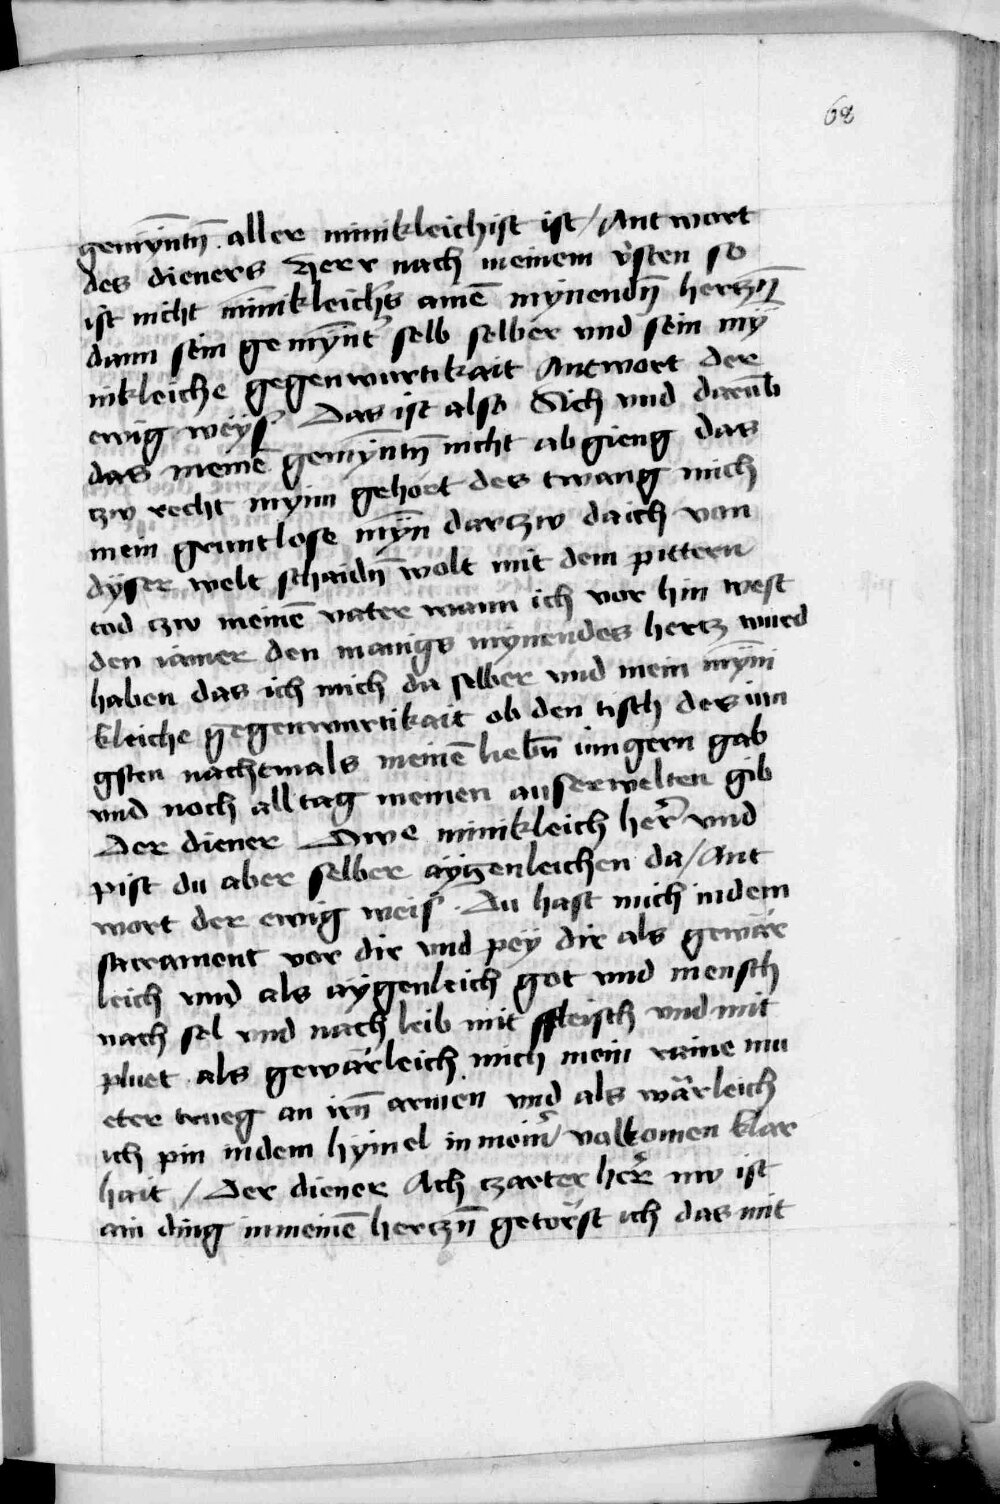 68
gemӱntn̄ aller minikleichist ist / Antwort
des dieners Herr nach meinem v̓sten so
ist nicht mīnikleichs̓ amē mӱnendn̄ hertzn̄
dann sein gemӱnt̓ selb selber vnd sein mӱ
nikleiche gegenwurtikait Antwort der
ewig weyſ Das ist also Sich vnd darūb
das meinē gemӱntn̄ nicht ab gieng das
tzw recht mynn gehört des twang mich
mein gruntlose mӱn̄ dartzw da ich von
dӱser welt schaidn̄ wolt mit dem pittern
tod tzw meinē vater wann ich vor hin west
den iamer den manigs mӱnendes hertz wurd
haben das ich mich da selber vnd mein mӱni
kleiche gegenwurtikait ob den tisch des iun
gsten nachtmals meinē liebn̄ iungern gab
vnd noch all tag meinen auserwelten gib
Der diener Owe minikleich her̄ vnd
pist du aber selber aӱgenleichen da / Ant
wort der ewig weiſ . Du hast mich in dem
sacrament vor dir vnd pey dir als gewär
leich vnd als aӱgenleich got vnd mensch
nach sel vnd nach leib mit ffleisch vnd mit
pluet als gewärleich mich mein raine mu
eter trueg an irn̄ armen vnd als wärleich
ich pin in dem hymel in mein̓ volkomen klar
hait / Der diener Ach tzarter her̄ nw ist
ain ding in meinē hertzn̄ getörst ich das mit